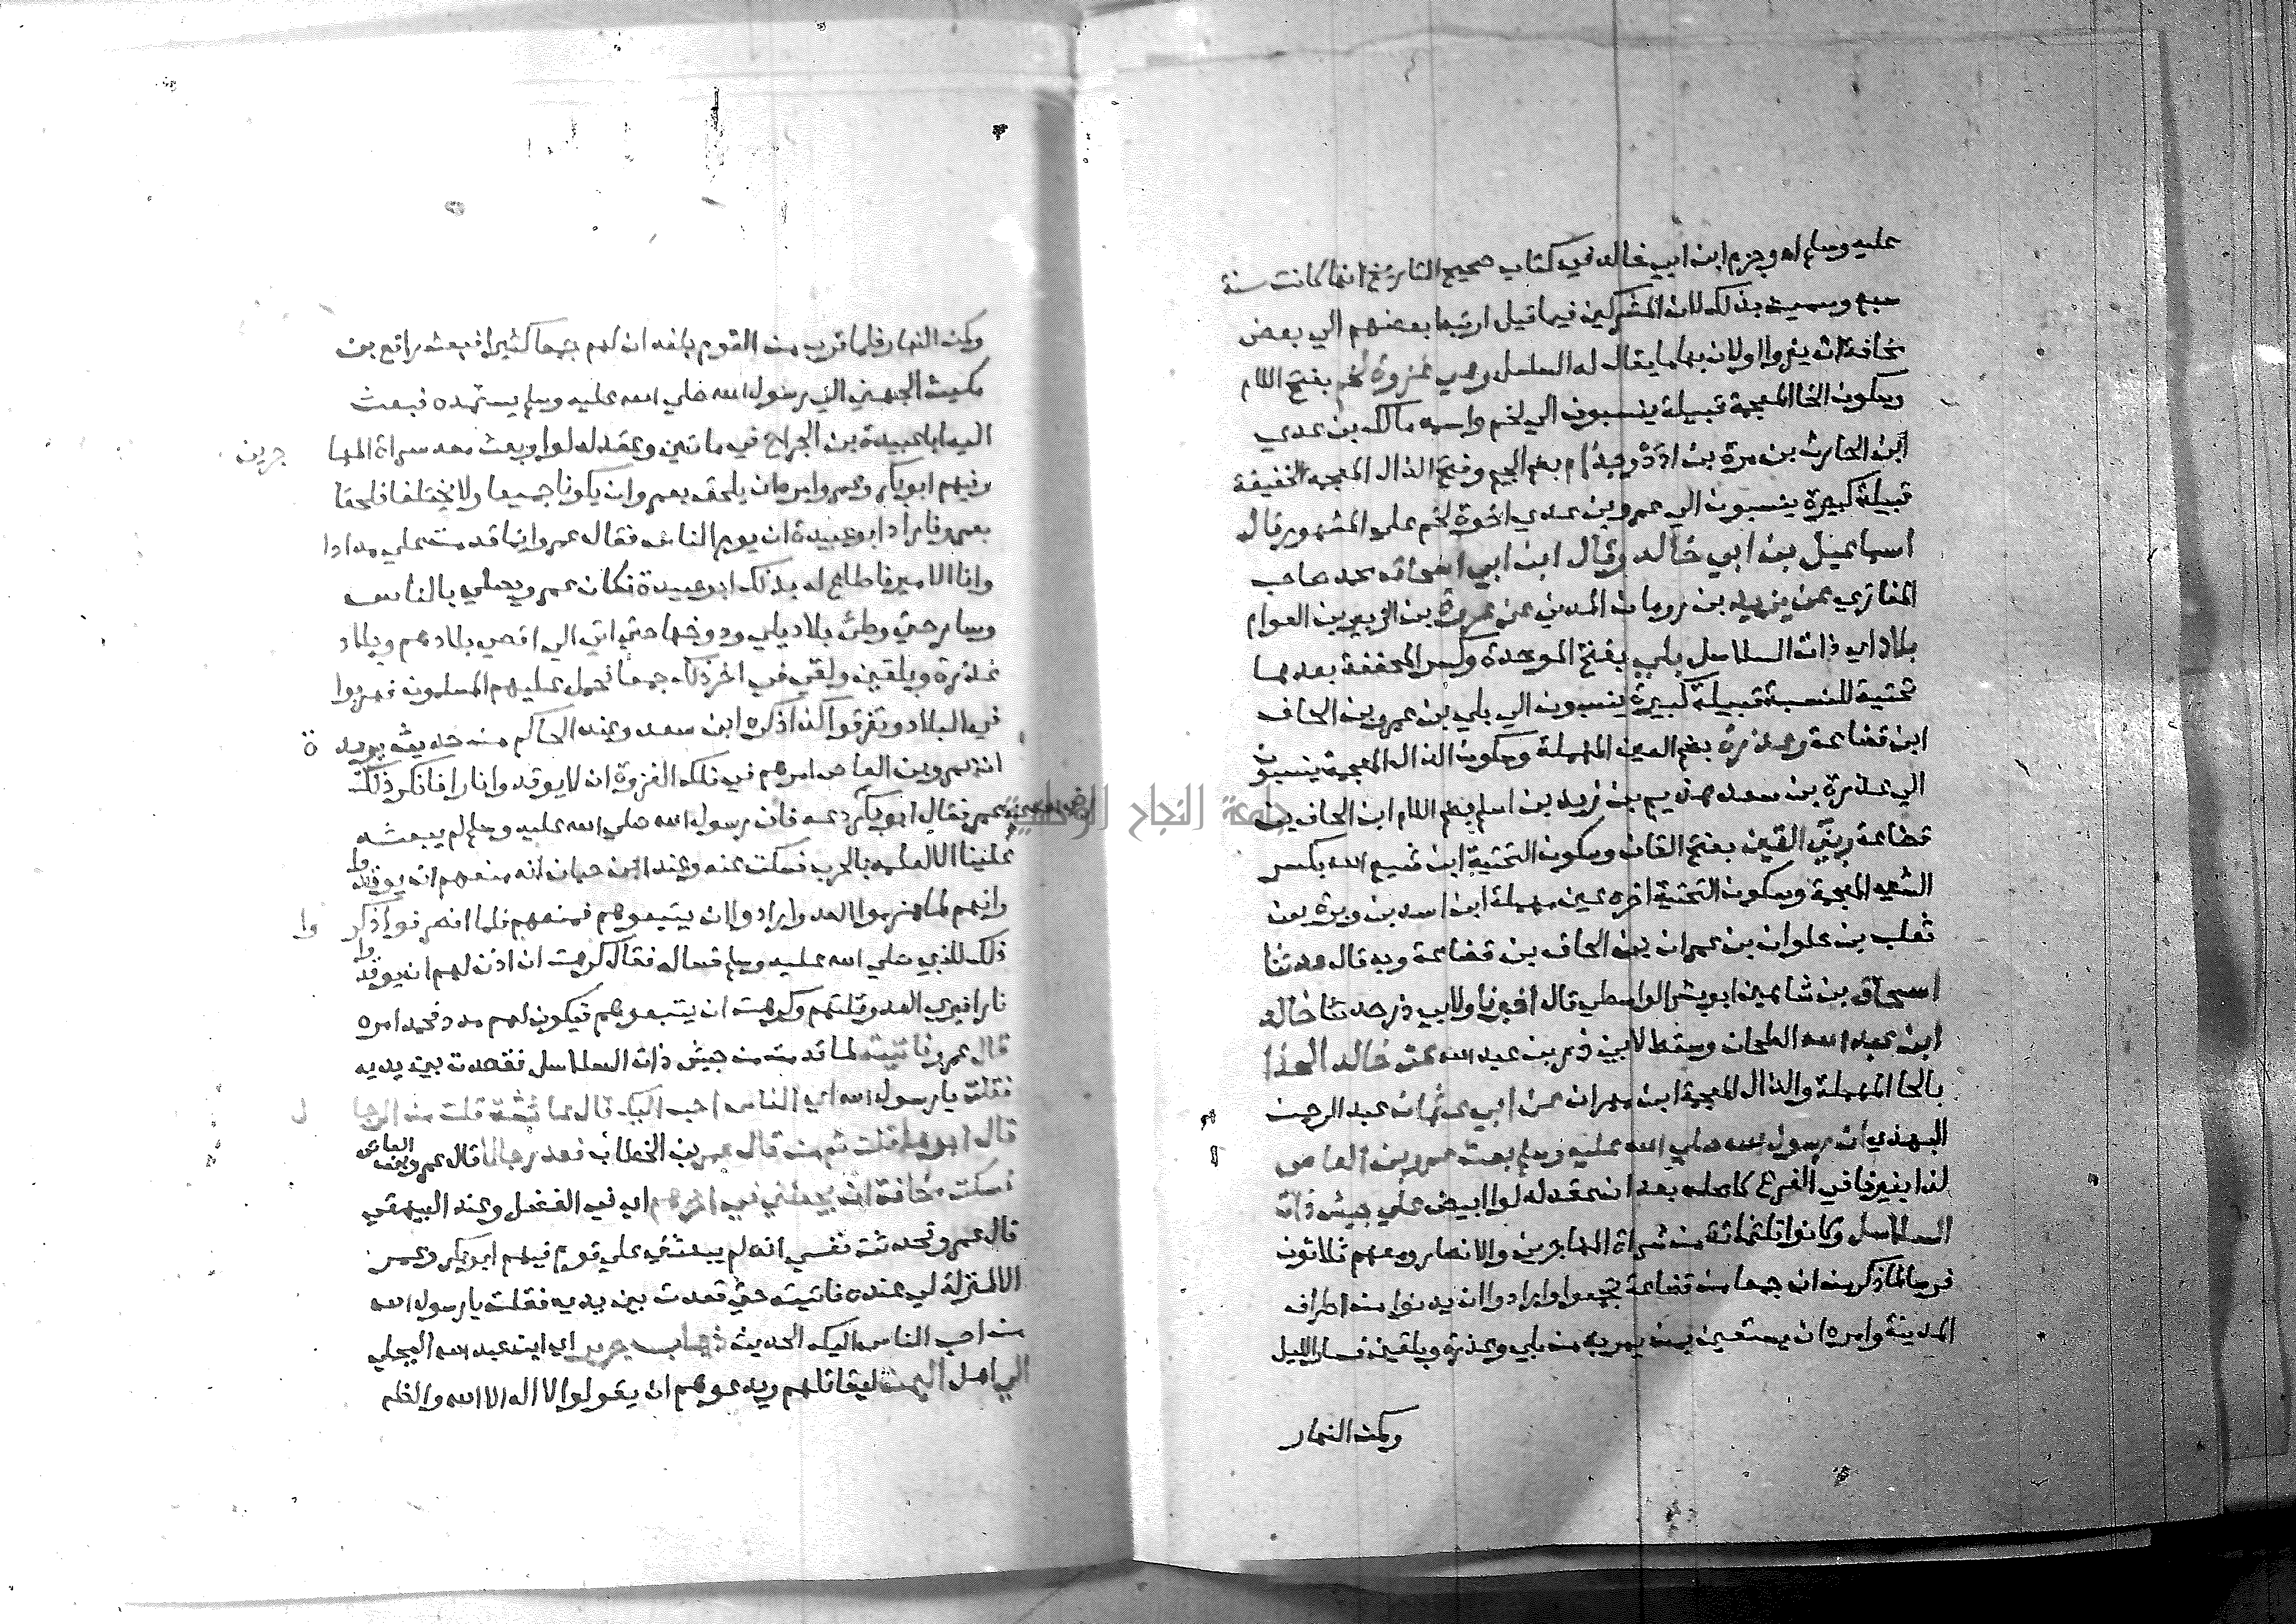 عليه وسلم اه وجزم ابن ابي خالد في كتاب صحيح التاريخ انها كانت سنة
سبع وسميت بذلك لان المشركين فيما قيل ارتبط بعضهم الي بعض
مخافة ان يفروا اولان بها ما يقال له السلسل وهي غزوة لخم بفتح اللام
وسكون الخا المعجمة قبيلة ينسبون الي لخم واسمه مالك بن عدي
ابن الحارث بن مرة بن ادد وجذام بضم الجيم وفتح الذال المعجمه الخفيفة
قبيلة كبيرة ينسبون الي عمرو بن عدي اخوة لخم علي المشهور قال
اسماعيل بن ابي خالد وقال ابن ابي اسحاق محمد صاحب
المغازي عن يزيد بن رومان المدني عن عروة بن الزبير بن العوام
بلاد اي ذات السلاسل بلي بفتح الموحدة وكسر المخففة بعدها
تحتية للنسبة قبيلة كبيرة ينسبون الي بلي بن عمرو بن الحاف
ابن قضاعة وعذرة بضم العين المهملة وسكون الذال المعجمة ينسبون
الي عذرة بن سعد هذيم بن زيد بن اسلم بضم اللام ابن الحاف بن
قضاعة وبني القين بفتح القاف وسكون التحتية ابن شيع الله بكسر
الشين المعجمة وسكون التحتية اخره عين مهملة ابن اسد بن وبرة بن
ثعلب بن علوان بن عمران بن الحاف بن قضاعة وبه قال حدثنا
اسحاق بن شاهين ابو بشر الواسطي قال اخبرنا ولابي ذر حدثنا خالد
ابن عبد الله الطحان وسقط لابي ذر بن عبد الله عن خالد الحذا
بالحا المهملة والذال المعجمة ابن مهران عن ابي عثمان عبد الرحمن
النهدي ان رسول الله صلي الله عليه وسلم بعث عمرو بن العاص
لذا بغير فا في الفرع كاصله بعد ان عقد له لوا ابيض علي جيش ذات
السلاسل وكانوا ثلثمائة من سراة المهاجرين والانصار ومعهم ثلاثون
فرسا لما ذكر من ان جمعا من قضاعة تجمعوا وارادوا ان يدنوا من اطراف
المدينة وامره ان يستعين بمن يمر به من بلي وعذرة وبلقين فسار الليل
وكمن النهار
وكمن النهار فلما قرب من القوم بلغه ان لهم جمعا كثيرا فبعث رافع بن
مكيث الجهني الي رسول الله صلي الله عليه وسلم يستمده فبعث
اليه ابا عبيدة بن الجراح في مائتين وعقد له لوا وبعث معه سراة المها جرين
وفيهم ابو بكر وعمر وامره ان يلحق بعمرو وان يكونا جميعا ولا يختلفا فلحقا
بعمرو فاراد ابو عبيدة ان يؤم الناس فقال عمرو انما قدمت علي مددا
وانا الامير فاطاع له بذلك ابو عبيدة فكان عمرو يصلي بالناس
وسار حتي وطئ بلاد بلي ودوخها حتي اتي الي اقصي بلادهم وبلاد
عذرة وبلقين ولقي في اخر ذلك جمعا فحمل عليهم المسلمون فهربوا
في البلاد وتفرقوا كذا ذكره ابن سعد وعند الحاكم من حديث بريد ة
ان عمرو بن العاص امرهم في تلك الغزوة ان لا يوقدوا نارا فانكر ذلك
عمر فقال ابو بكر دعه فان رسول الله صلي الله عليه وسلم لم يبعثه
علينا الا لعلمه بالحرب فسكت عنه وعند ابن حبان انه منعهم ان يوقدوا
وانهم لما هزموا العدو ارادوا ان يتبعوهم فمنعهم فلما انصرفوا ذكر وا
ذلك للنبي صلي الله عليه وسلم فساله فقال كرهت ان اذن لهم ان يوقدوا
نارا فيري العدو قلتهم وكرهت ان يتبعوهم فيكون لهم مدد فحمد امره
قال عمرو فاتيته لما قدمت من جيش ذات السلاسل فقعدت بين يديه
فقلت يا رسول الله اي الناس احب اليك قال عائشة قلت من الرجا ل
قال ابوها قلت ثم من قال عمر بن الخطاب فعد رجالا قال عمرو بن العاص
فسكت مخافة ان يجعلني في اخرهم اي في الفضل وعند البيهقي
قال عمرو فحدثت نفسي انه لم يبعثني علي قوم فيهم ابو بكر وعمر
الا لمنزلة لي عنده فاتيته حتي قعدت بين يديه فقلت يا رسول الله
من احب الناس اليك الحديث ذهاب جرير اي ابن عبد الله البجلي
الي اهل اليمن ليقاتلهم ويدعوهم ان يقولوا لا اله الا الله والظا
جامعة النجاح الوطنية